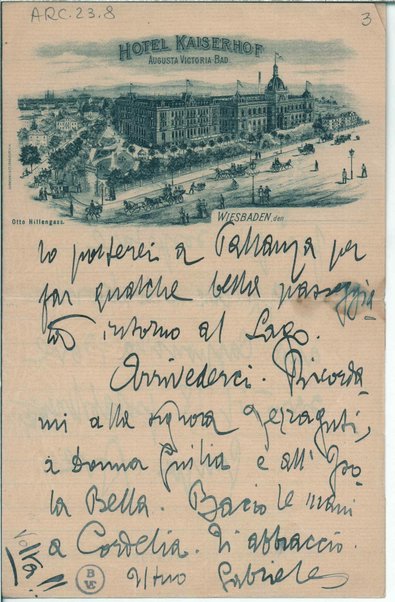 ARC.23.8
3
HOTEL KAISERHOF
AUGUSTA VICTORIA-BAD
Otto Hillengass.
WIESBADEN, den
Io porterei a Pallanza per
far qualche bella passeggia
ta intorno al Lago.
Arrivederci. Ricorda
mi alla signora
a Donna Giulia e all' Iso
la Bella. Bacio le mani
a Cordelia. Ti abbraccio.
Il tuo Gabriele